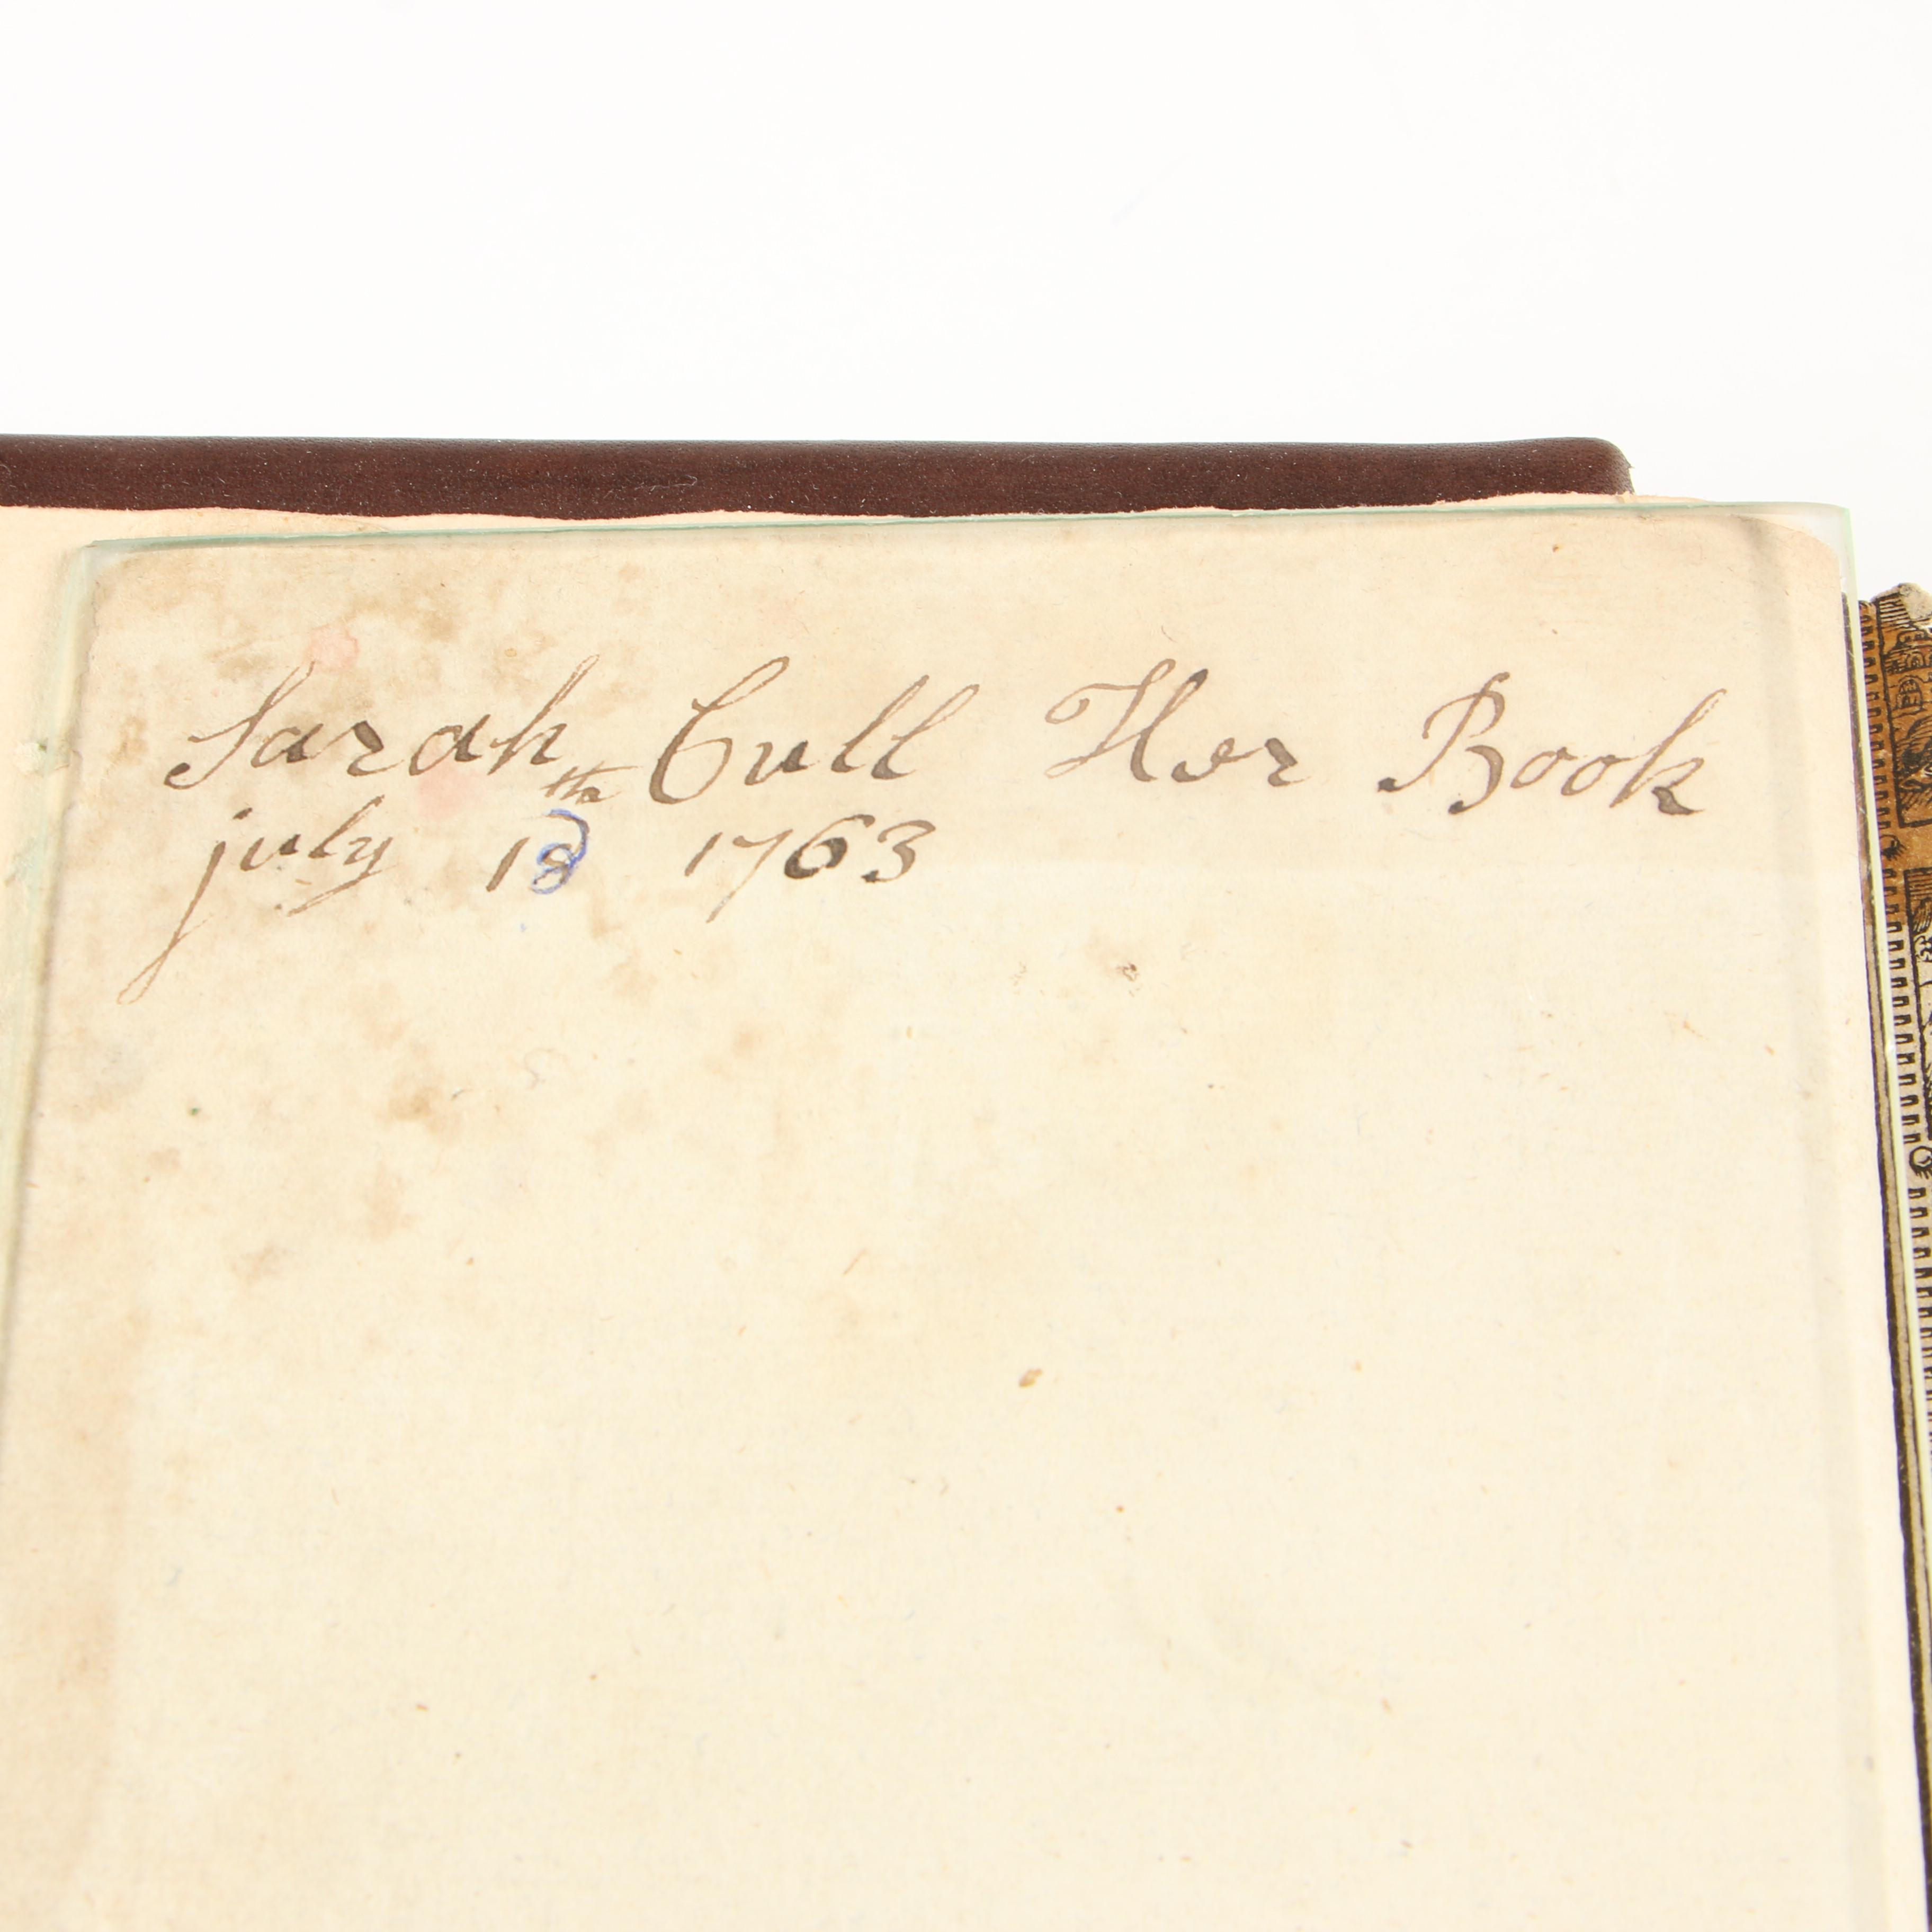 Sarah Cull Her Book
july 18th 1763